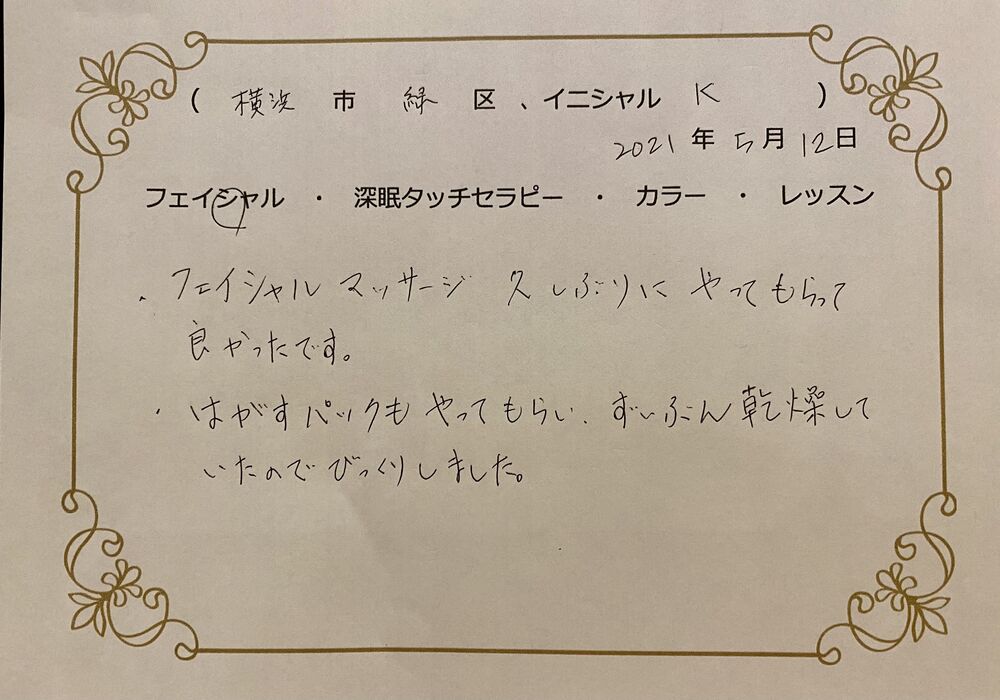 ( 横浜 市 緑 区 、イニシャル K )
2021 年 5 月 12 日
フェイシャル ・ 深眠タッチセラピー ・ カラー ・ レッスン
・フェイシャルマッサージ 久しぶりに やってもらって
良かったです。
・はがすパックも やってもらい、ずいぶん乾燥して
いたのでびっくりしました。